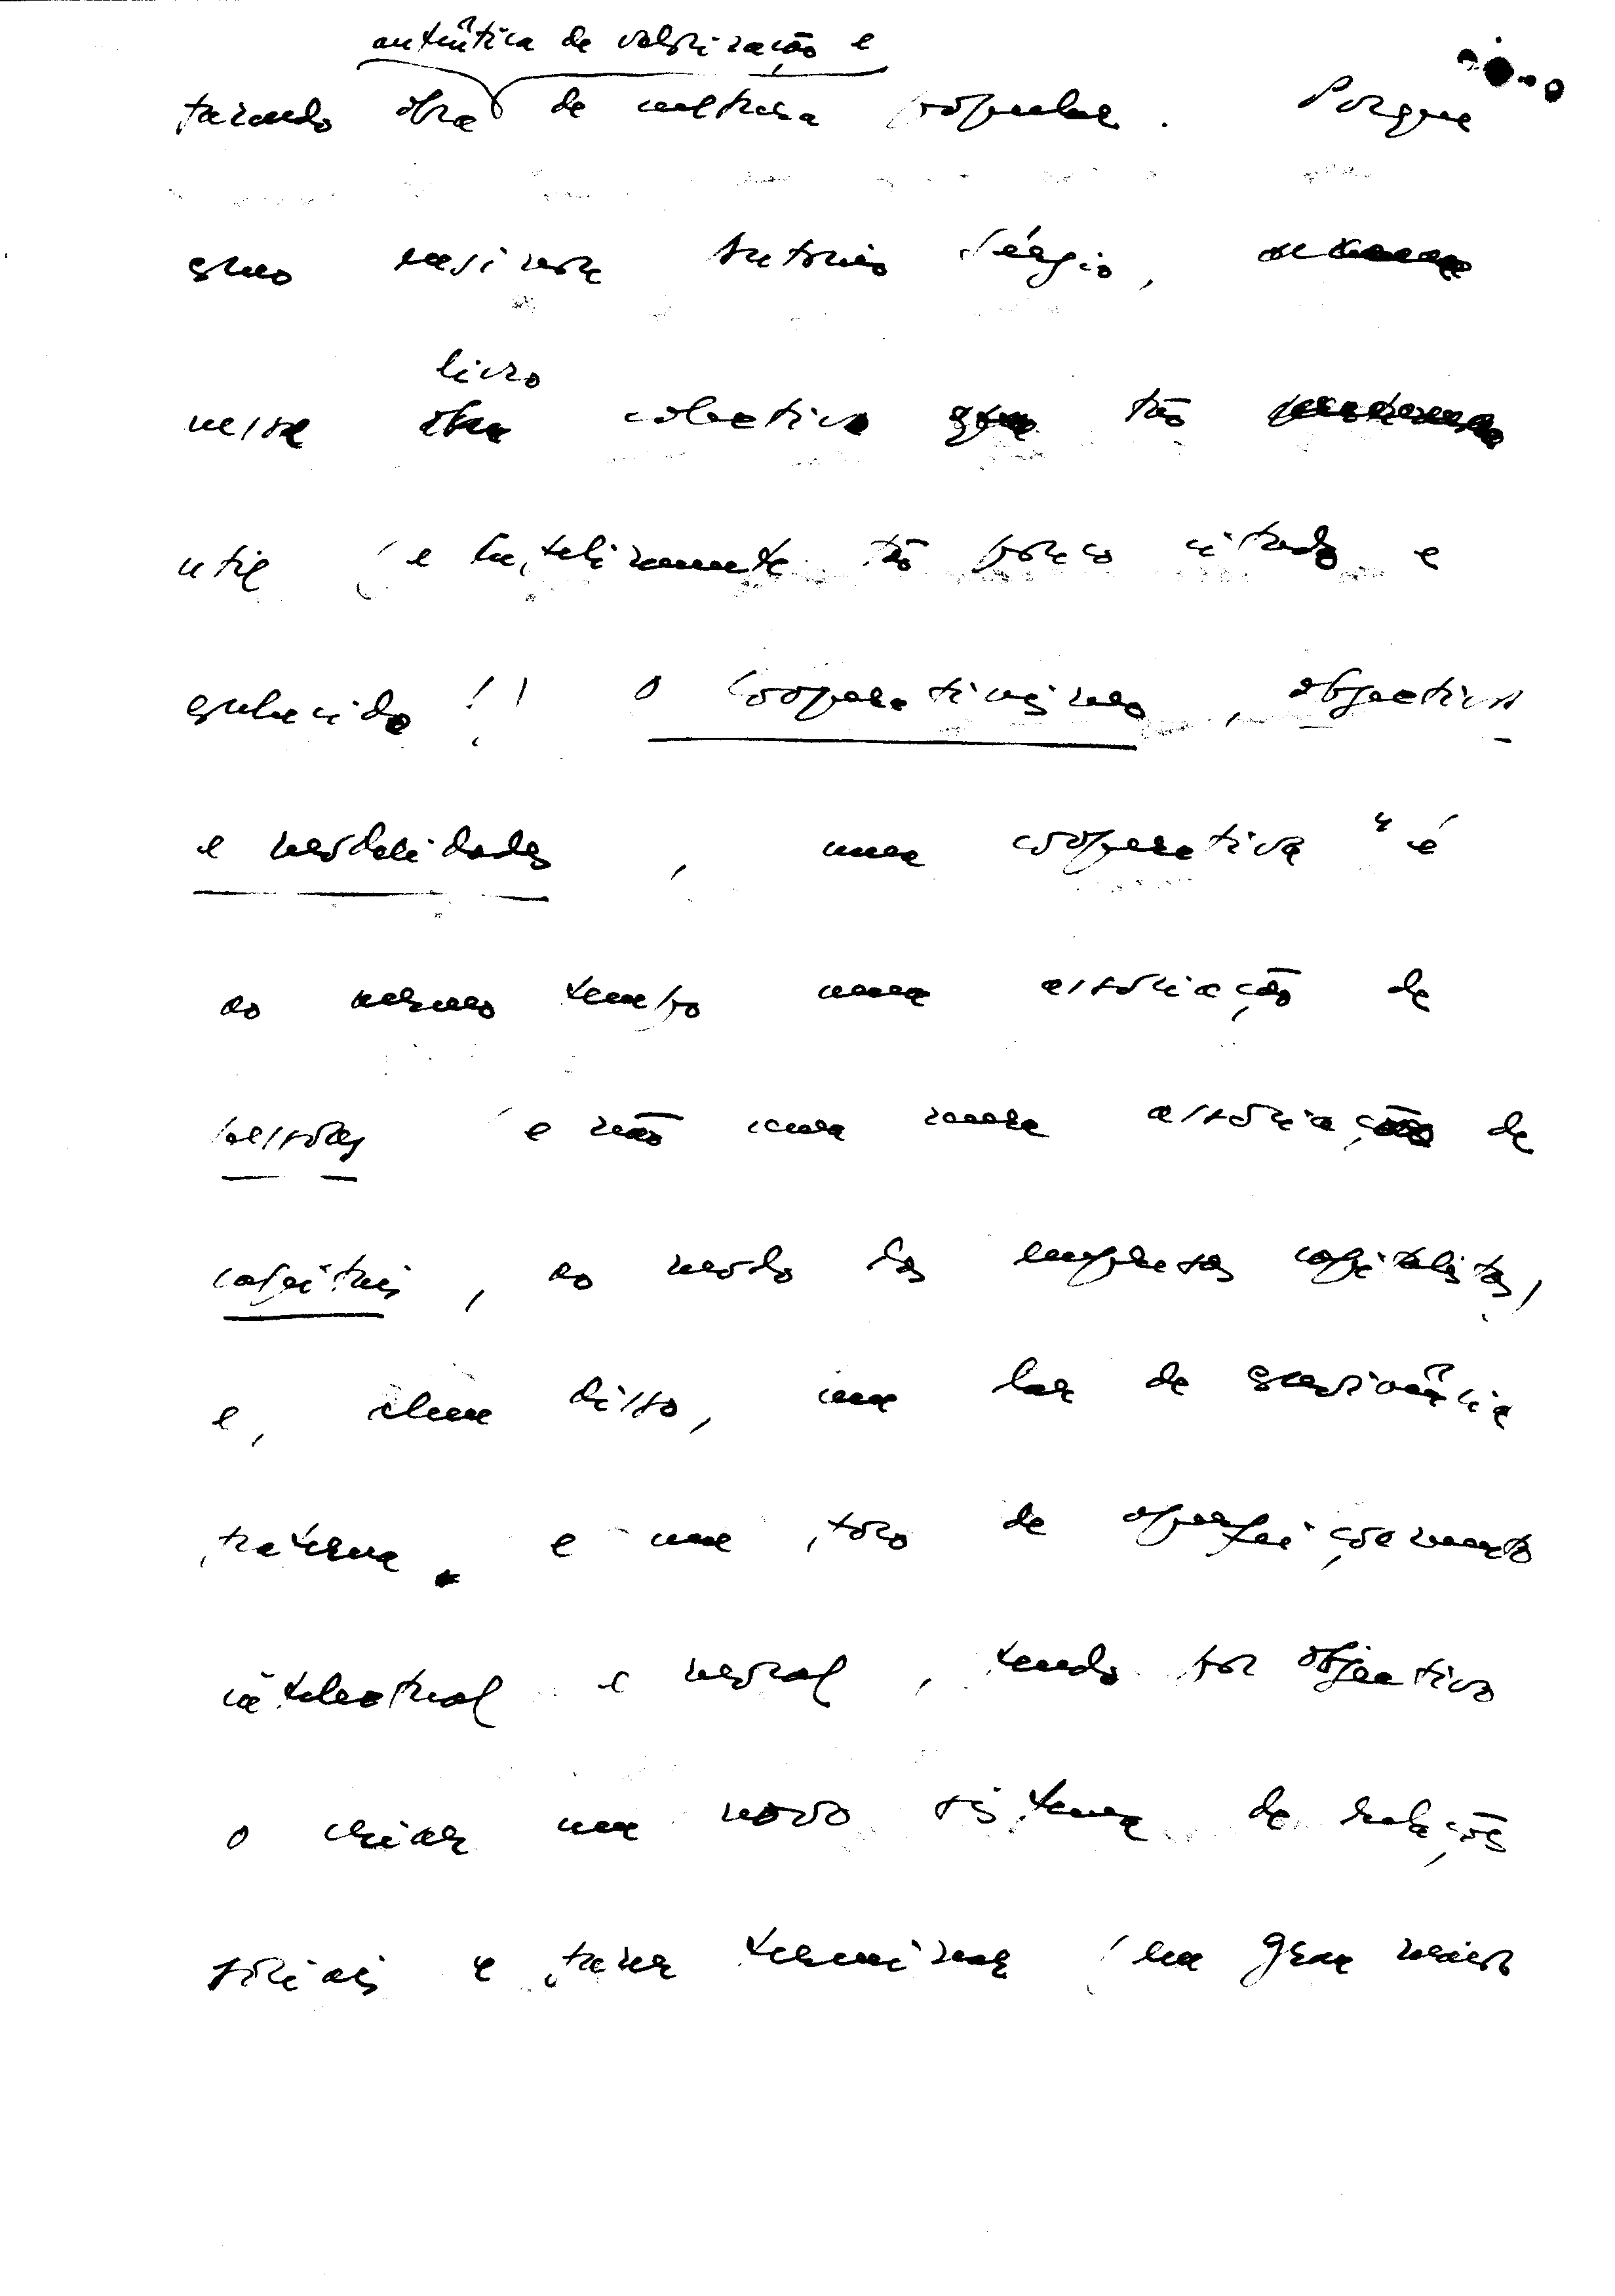 autêntica de valorização e
fazendo obra de cultura popular. Porque
como ensinou António Sérgio,
livro
nesse obra colectivo que tão
útil (e infelizmente tão pouco citado e
conhecido!) O Cooperativismo, objectivos
e modalidades, uma cooperativa "é
ao mesmo tempo uma associação de
pessoas (e não uma mera associação de
capitais, ao modo das empresas capitalistas,
e, além disso, um lar de convivência
fraterna e um foco de aperfeiçoamento
intelectual e moral, tendo por objectivo
o criar um novo sistema de relações
sociais e fazer terminar (em grau maior